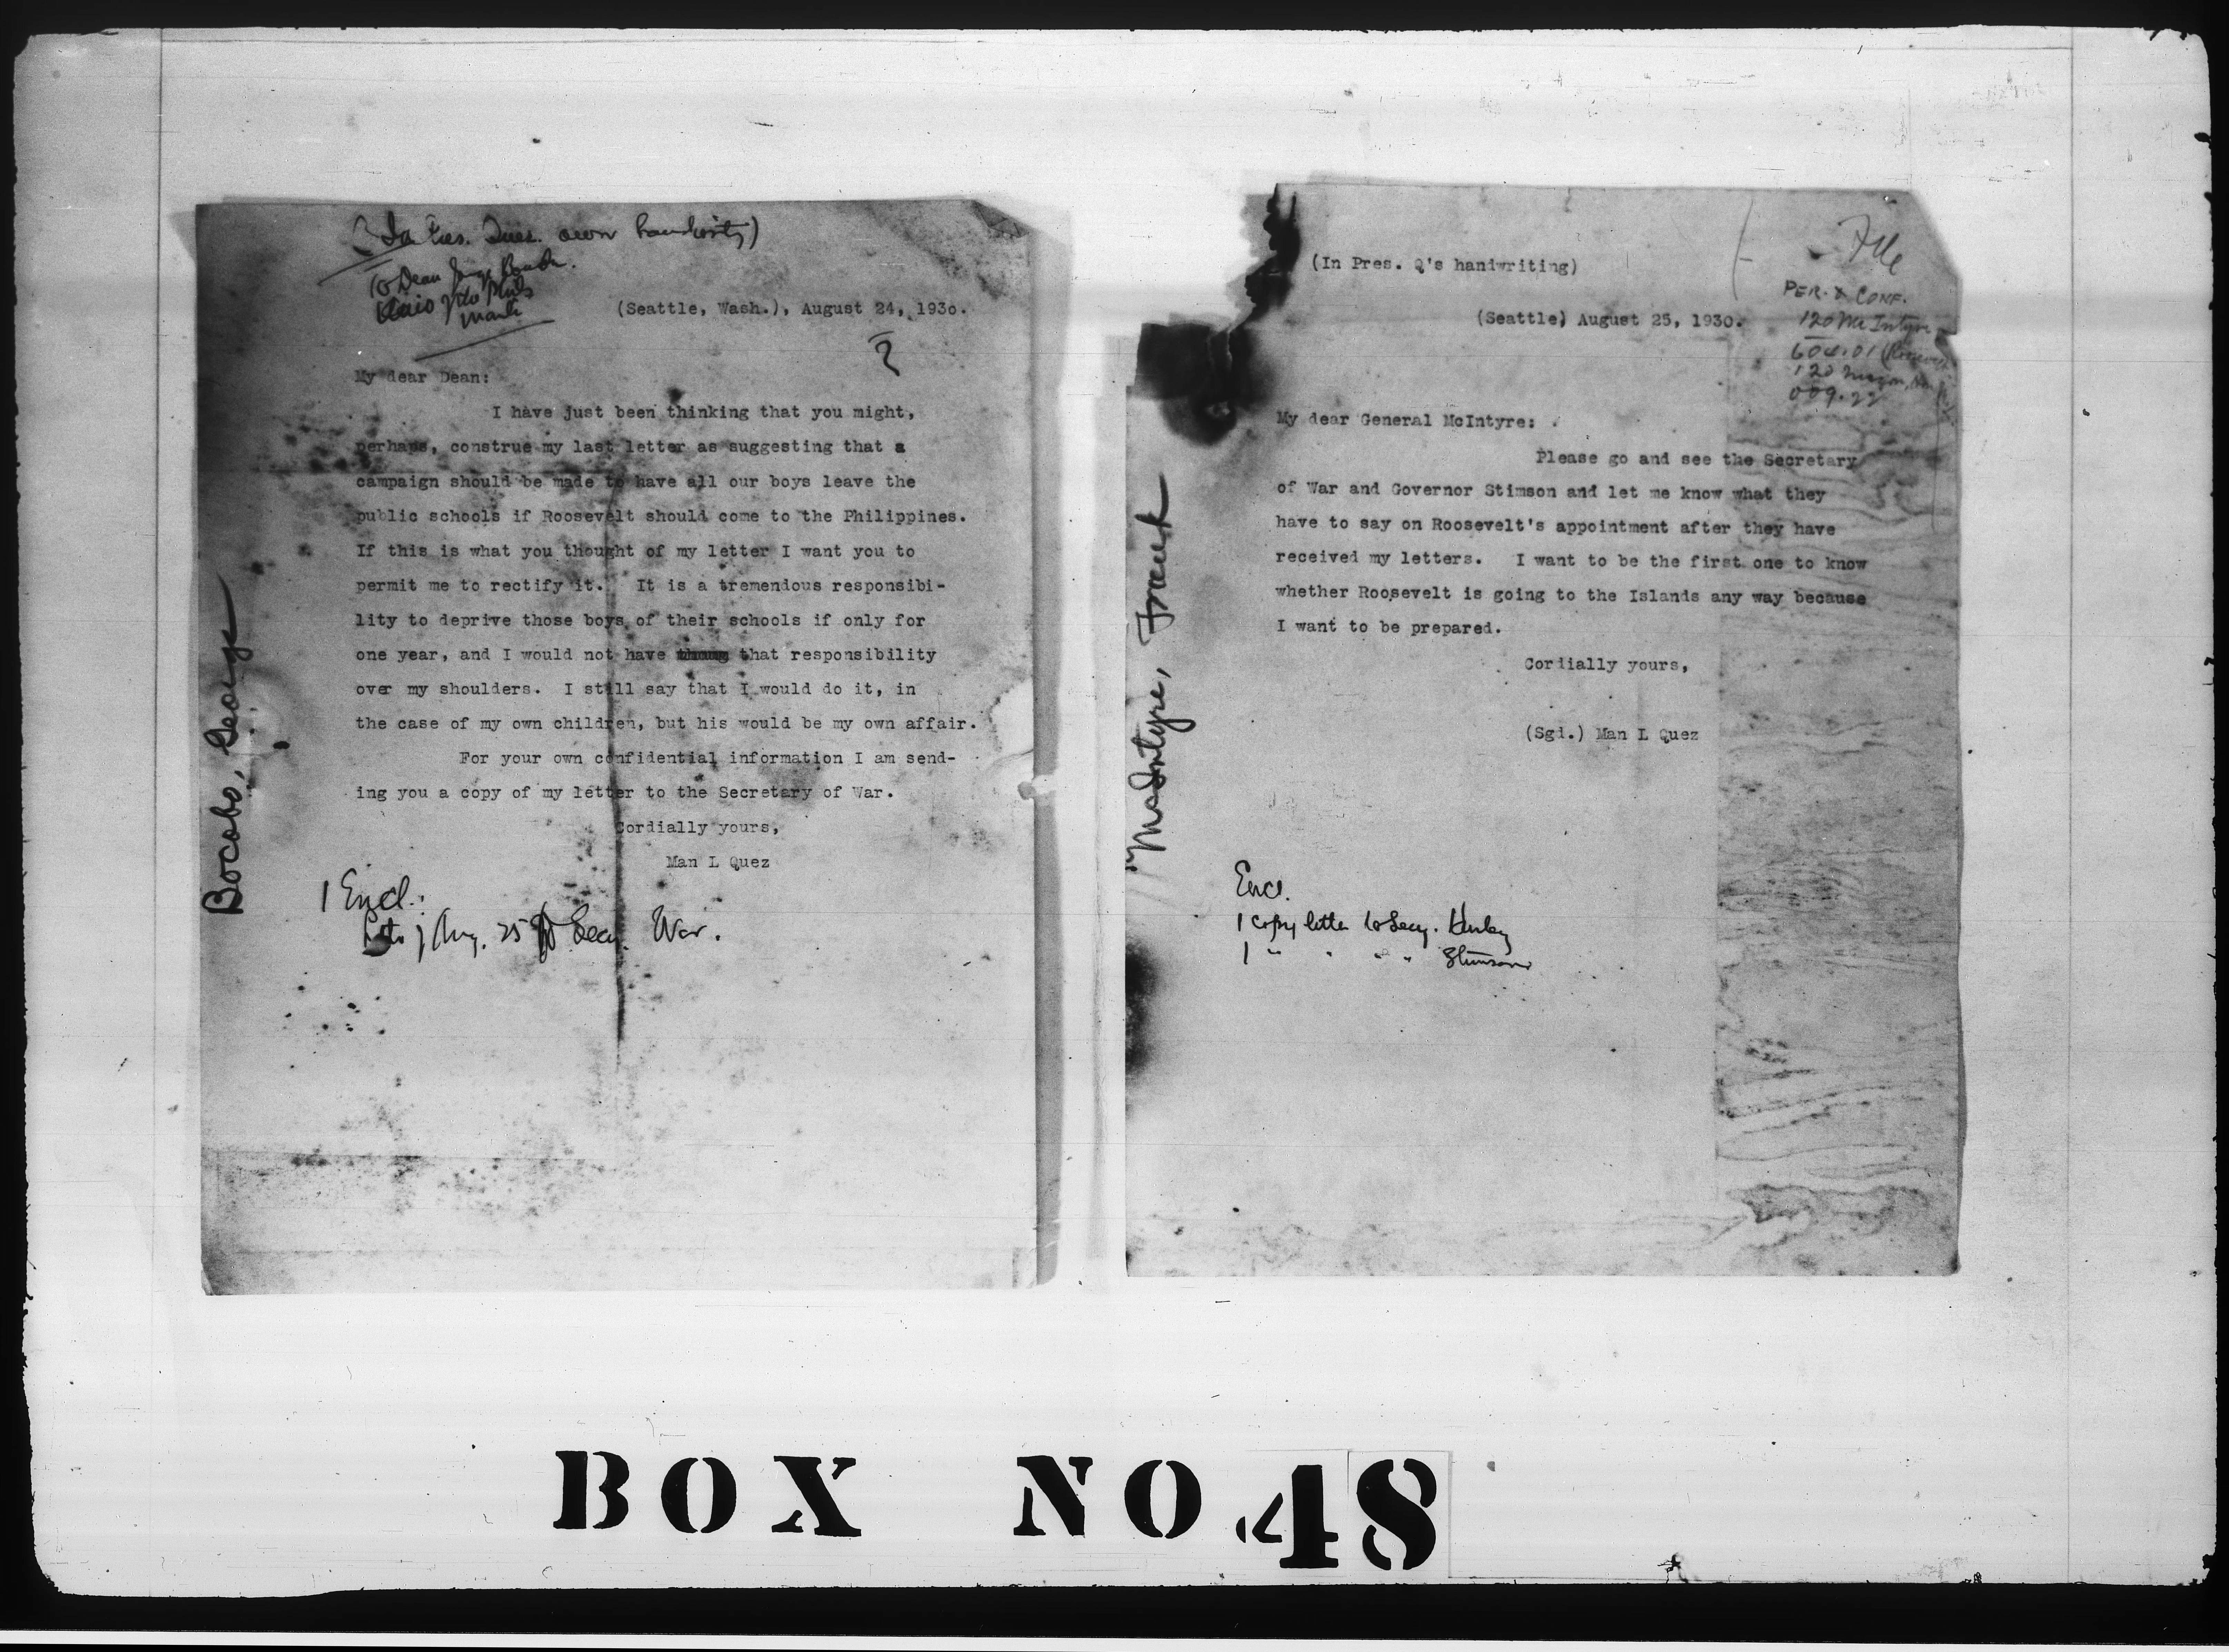 (In Pres. Ques. own handwriting)
To Dean
Manila
(Seattle, Wash.), August 24, 1930.
?
My dear Dean:
I have just been thinking that you might,
perhaps, construe my last letter as suggesting that a
campaign should be made to have all our boys leave the
public schools if Roosevelt should come to the Philippines.
If this is what you thought of my letter I want you to
permit me to rectify it. It is a tremendous responsibi-
lity to deprive those boys of their schools if only for
one year, and I would not have that responsibility
over my shoulders. I still say that I would do it, in
the case of my own children, but his would be my own affair.
For your own confidential information I am send-
ing you a copy of my letter to the Secretary of War.
Cordially yours,
Man L Quez
1 Encl.:
Aug. 25 to Secy. War.
Bocobo, George
(In Pres. Q's handwriting)
File
PER. & CONF.
120 McIntyre
604.01
120
009.22
(Seattle) August 25, 1930.
My dear General McIntyre:
Please go and see the Secretary
of War and Governor Stimson and let me know what they
have to say on Roosevelt's appointment after they have
received my letters. I want to be the first one to know
whether Roosevelt is going to the Islands any way because
I want to be prepared.
Cordially yours,
(Sgd.) Man L Quez
Encl.
1 copy letter to Secy. Hurley
1 " " " " Stimson
McIntyre, Frank
BOX NO. 48